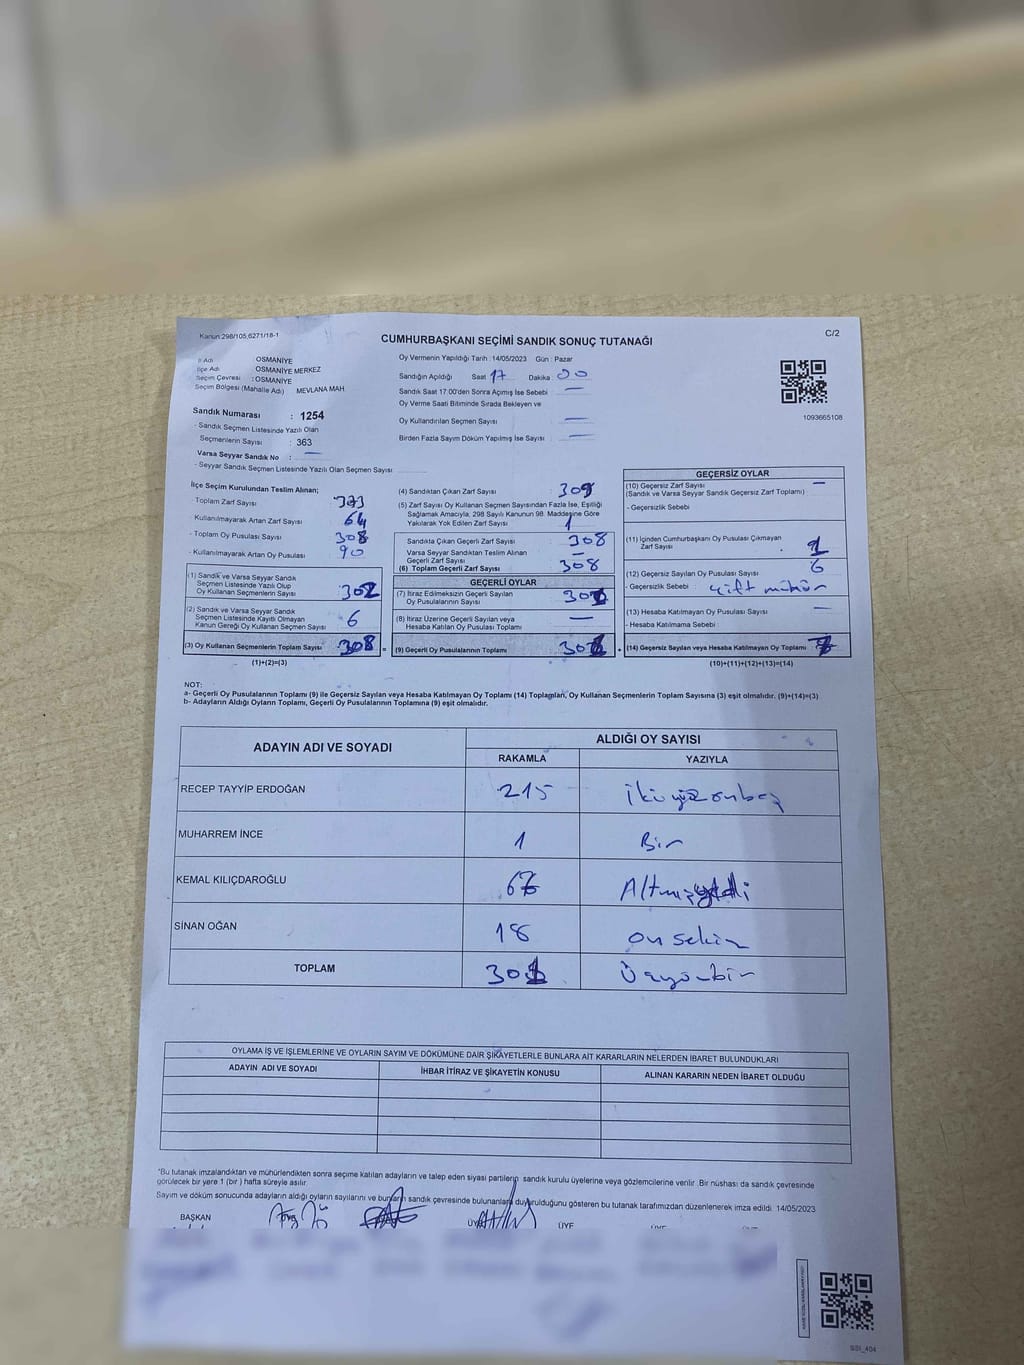 Kanun:298/105,6271/18-1
CUMHURBAŞKANI SEÇİMİ SANDIK SONUÇ TUTANAĞI
C/2
İl Adı : OSMANİYE
İlçe Adı : OSMANİYE MERKEZ
Seçim Çevresi : OSMANİYE
Seçim Bölgesi (Mahalle Adı) MEVLANA MAH.
Sandık Numarası : 1254
- Sandık Seçmen Listesinde Yazılı Olan
Seçmenlerin Sayısı : 363
Varsa Seyyar Sandık No : —
- Seyyar Sandık Seçmen Listesinde Yazılı Olan Seçmen Sayısı
Oy Vermenin Yapıldığı Tarih :14/05/2023 Gün : Pazar
Sandığın Açıldığı Saat 17 Dakika 00
Sandık Saat 17.00'den Sonra Açımış İse Sebebi —
Oy Verme Saati Bitiminde Sırada Bekleyen ve
Oy Kullandırılan Seçmen Sayısı : —
Birden Fazla Sayım Döküm Yapılmış İse Sayısı : —
1093665108
İlçe Seçim Kurulundan Teslim Alınan;
- Toplam Zarf Sayısı : 373
- Kullanılmayarak Artan Zarf Sayısı : 64
- Toplam Oy Pusulası Sayısı : 308
- Kullanılmayarak Artan Oy Pusulası : 90
(1) Sandık ve Varsa Seyyar Sandık
Seçmen Listesinde Yazılı Olup
Oy Kullanan Seçmenlerin Sayısı : 302
(2) Sandık ve Varsa Seyyar Sandık
Seçmen Listesinde Kayıtlı Olmayan
Kanun Gereği Oy Kullanan Seçmen Sayısı : 6
(3) Oy Kullanan Seçmenlerin Toplam Sayısı : 308
(1)+(2)=(3)
(4) Sandıktan Çıkan Zarf Sayısı : 309
(5) Zarf Sayısı Oy Kullanan Seçmen Sayısından Fazla İse, Eşitliği
Sağlamak Amacıyla, 298 Sayılı Kanunun 98. Maddesine Göre
Yakılarak Yok Edilen Zarf Sayısı : 1
Sandıkta Çıkan Geçerli Zarf Sayısı : 308
Varsa Seyyar Sandıktan Teslim Alınan
Geçerli Zarf Sayısı : —
(6) Toplam Geçerli Zarf Sayısı : 308
GEÇERLİ OYLAR
(7) İtiraz Edilmeksizin Geçerli Sayılan
Oy Pusulalarının Sayısı : 301
(8) İtiraz Üzerine Geçerli Sayılan veya
Hesaba Katılan Oy Pusulası Toplamı : —
= (9) Geçerli Oy Pusulalarının Toplamı : 301
GEÇERSİZ OYLAR
(10) Geçersiz Zarf Sayısı : —
(Sandık ve Varsa Seyyar Sandık Geçersiz Zarf Toplamı)
- Geçersizlik Sebebi :
(11) İçinden Cumhurbaşkanı Oy Pusulası Çıkmayan
Zarf Sayısı : 1
(12) Geçersiz Sayılan Oy Pusulası Sayısı : 6
- Geçersizlik Sebebi : Çift mühür
(13) Hesaba Katılmayan Oy Pusulası Sayısı : —
- Hesaba Katılmama Sebebi :
+ (14) Geçersiz Sayılan veya Hesaba Katılmayan Oy Toplamı : 7
(10)+(11)+(12)+(13)=(14)
NOT:
a- Geçerli Oy Pusulalarının Toplamı (9) ile Geçersiz Sayılan veya Hesaba Katılmayan Oy Toplamı (14) Toplamları, Oy Kullanan Seçmenlerin Toplam Sayısına (3) eşit olmalıdır. (9)+(14)=(3)
b- Adayların Aldığı Oyların Toplamı, Geçerli Oy Pusulalarının Toplamına (9) eşit olmalıdır.
ADAYIN ADI VE SOYADI
ALDIĞI OY SAYISI
RAKAMLA YAZIYLA
RECEP TAYYİP ERDOĞAN 215 ikiyüzonbeş
MUHARREM İNCE 1 Bir
KEMAL KILIÇDAROĞLU 67 Altmışyedi
SİNAN OĞAN 18 on sekiz
TOPLAM 301 Üçyüzbir
OYLAMA İŞ VE İŞLEMLERİNE VE OYLARIN SAYIM VE DÖKÜMÜNE DAİR ŞİKAYETLERLE BUNLARA AİT KARARLARIN NELERDEN İBARET BULUNDUKLARI
ADAYIN ADI VE SOYADI İHBAR İTİRAZ VE ŞİKAYETİN KONUSU ALINAN KARARIN NEDEN İBARET OLDUĞU
*Bu tutanak imzalandıktan ve mühürlendikten sonra seçime katılan adayların ve talep eden siyasi partilerin sandık kurulu üyelerine veya gözlemcilerine verilir .Bir nüshası da sandık çevresinde
görülecek bir yere 1 (bir ) hafta süreyle asılır.
Sayım ve döküm sonucunda adayların aldığı oyların sayılarını ve bunların sandık çevresinde bulunanlara duyurulduğunu gösteren bu tutanak tarafımızdan düzenlenerek imza edildi. 14/05/2023
BAŞKAN ÜYE ÜYE ÜYE
SSI_404